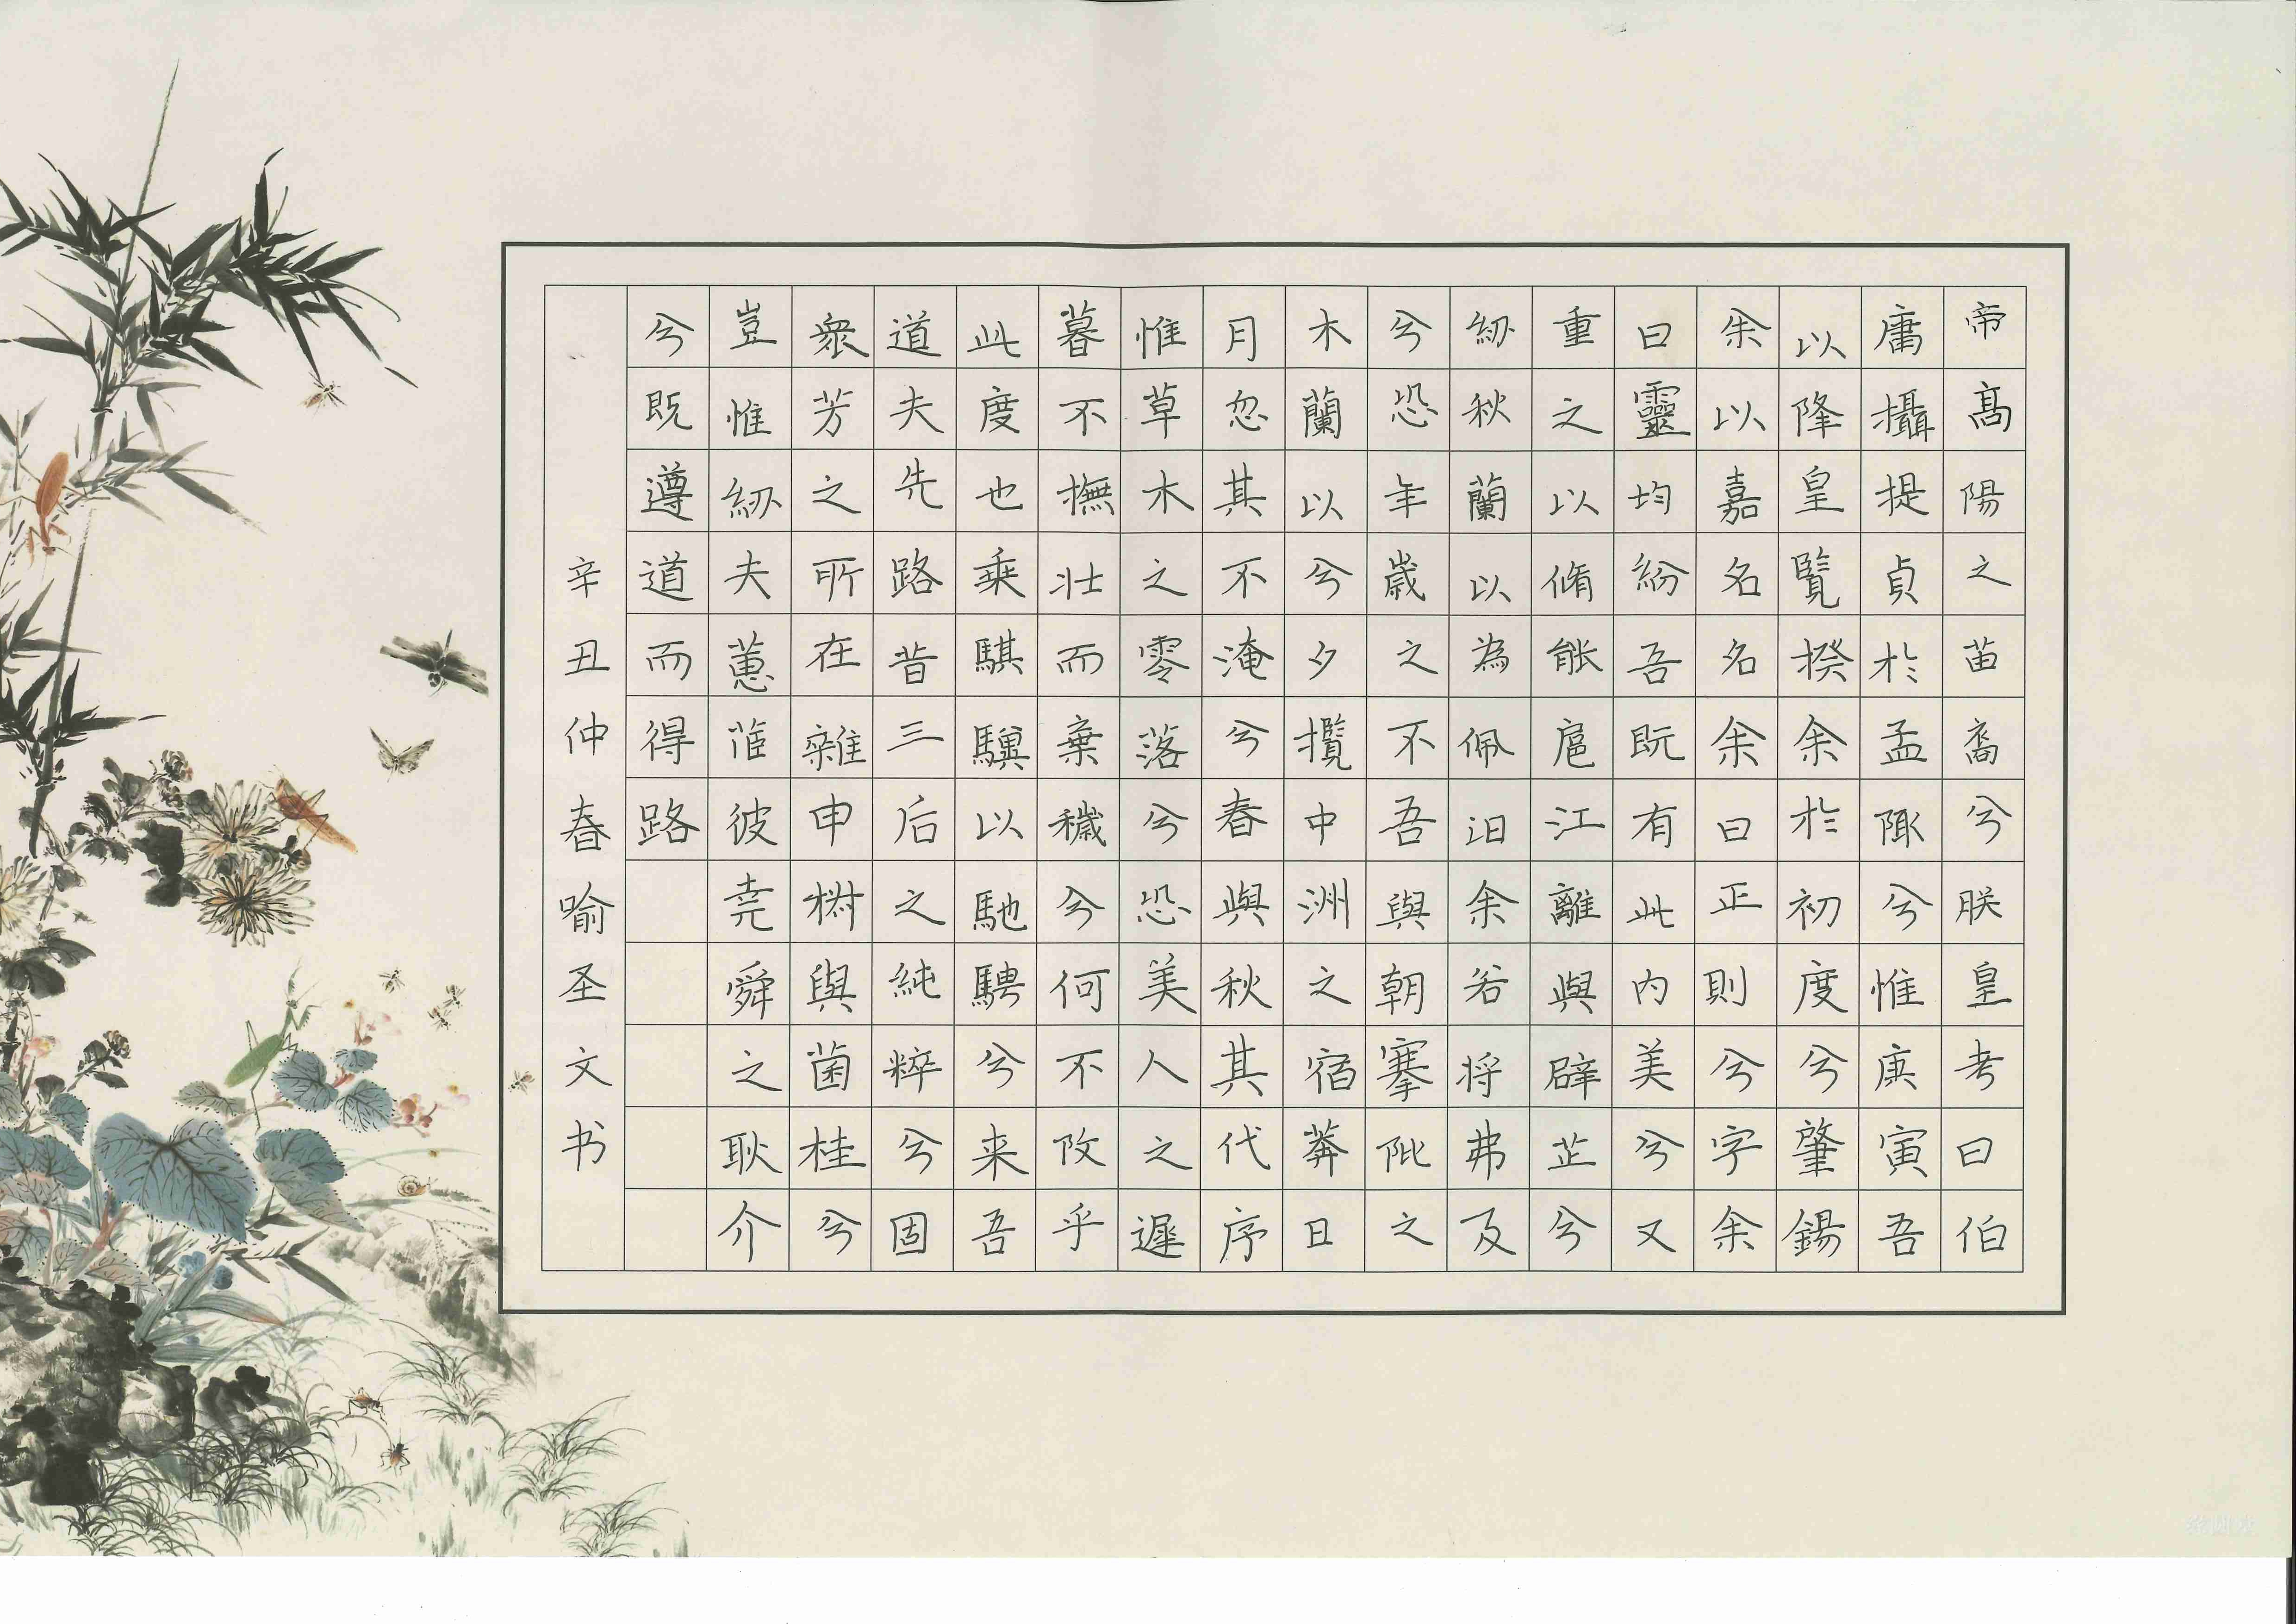 帝高陽之苗裔兮朕皇考曰伯
庸攝提貞於孟陬兮惟庚寅吾
以降皇覽揆余於初度兮肇錫
余以嘉名名余曰正則兮字余
曰靈均紛吾既有此内美兮又
重之以脩能扈江離與辟芷兮
紉秋蘭以為佩汩余若将弗及
兮恐年歲之不吾與朝搴阰之
木蘭以兮夕攬中洲之宿莽日
月忽其不淹兮春與秋其代序
惟草木之零落兮恐美人之遲
暮不撫壮而棄穢兮何不改乎
此度也乘騏驥以馳騁兮来吾
道夫先路昔三后之純粹兮固
衆芳之所在雜申椒與菌桂兮
豈惟紉夫蕙茝彼尭舜之耿介
兮既遵道而得路
辛丑仲春喻圣文书